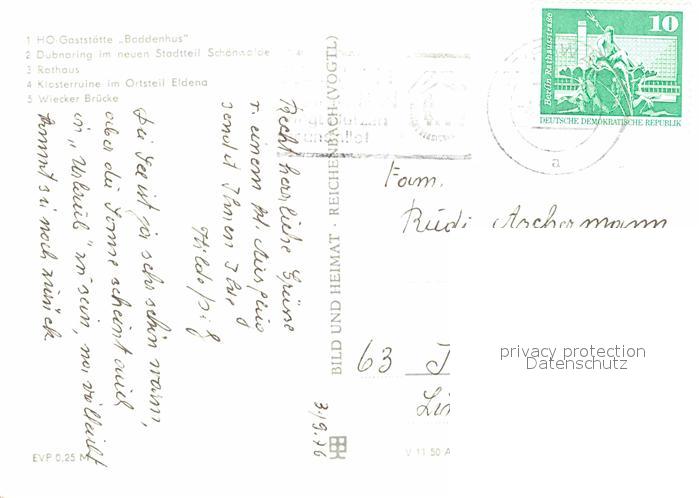 1 HO-Gaststätte „Boddenhus"
2 Dubnaring im neuen Stadtteil Schönwalde
3 Rathaus
4 Klosterruine im Ortsteil Eldena
5 Wiecker Brücke
Recht herzliche Grüsse
v. einem kl. Ausflug
sendet Ihnen Ihre
Hilde
Die See ist ja sehr schön warm,
aber die Sonne scheint auch
in „Urlaub" zu sein, na, vielleicht
kommt sie noch zurück
3.9.76
BILD UND HEIMAT · REICHENBACH (VOGTL)
EVP 0,25 M
V 11 50 A
10
Berlin, Rathausstraße
DEUTSCHE DEMOKRATISCHE REPUBLIK
a
Fam.
Rudi Aschermann
63 J
Lin
privacy protection
Datenschutz